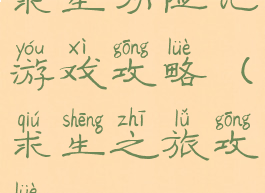 求生历险记
yóu xì gōng lüè
游戏攻略（
qiú shēng zhī lǚ gōng
求生之旅攻
lüè